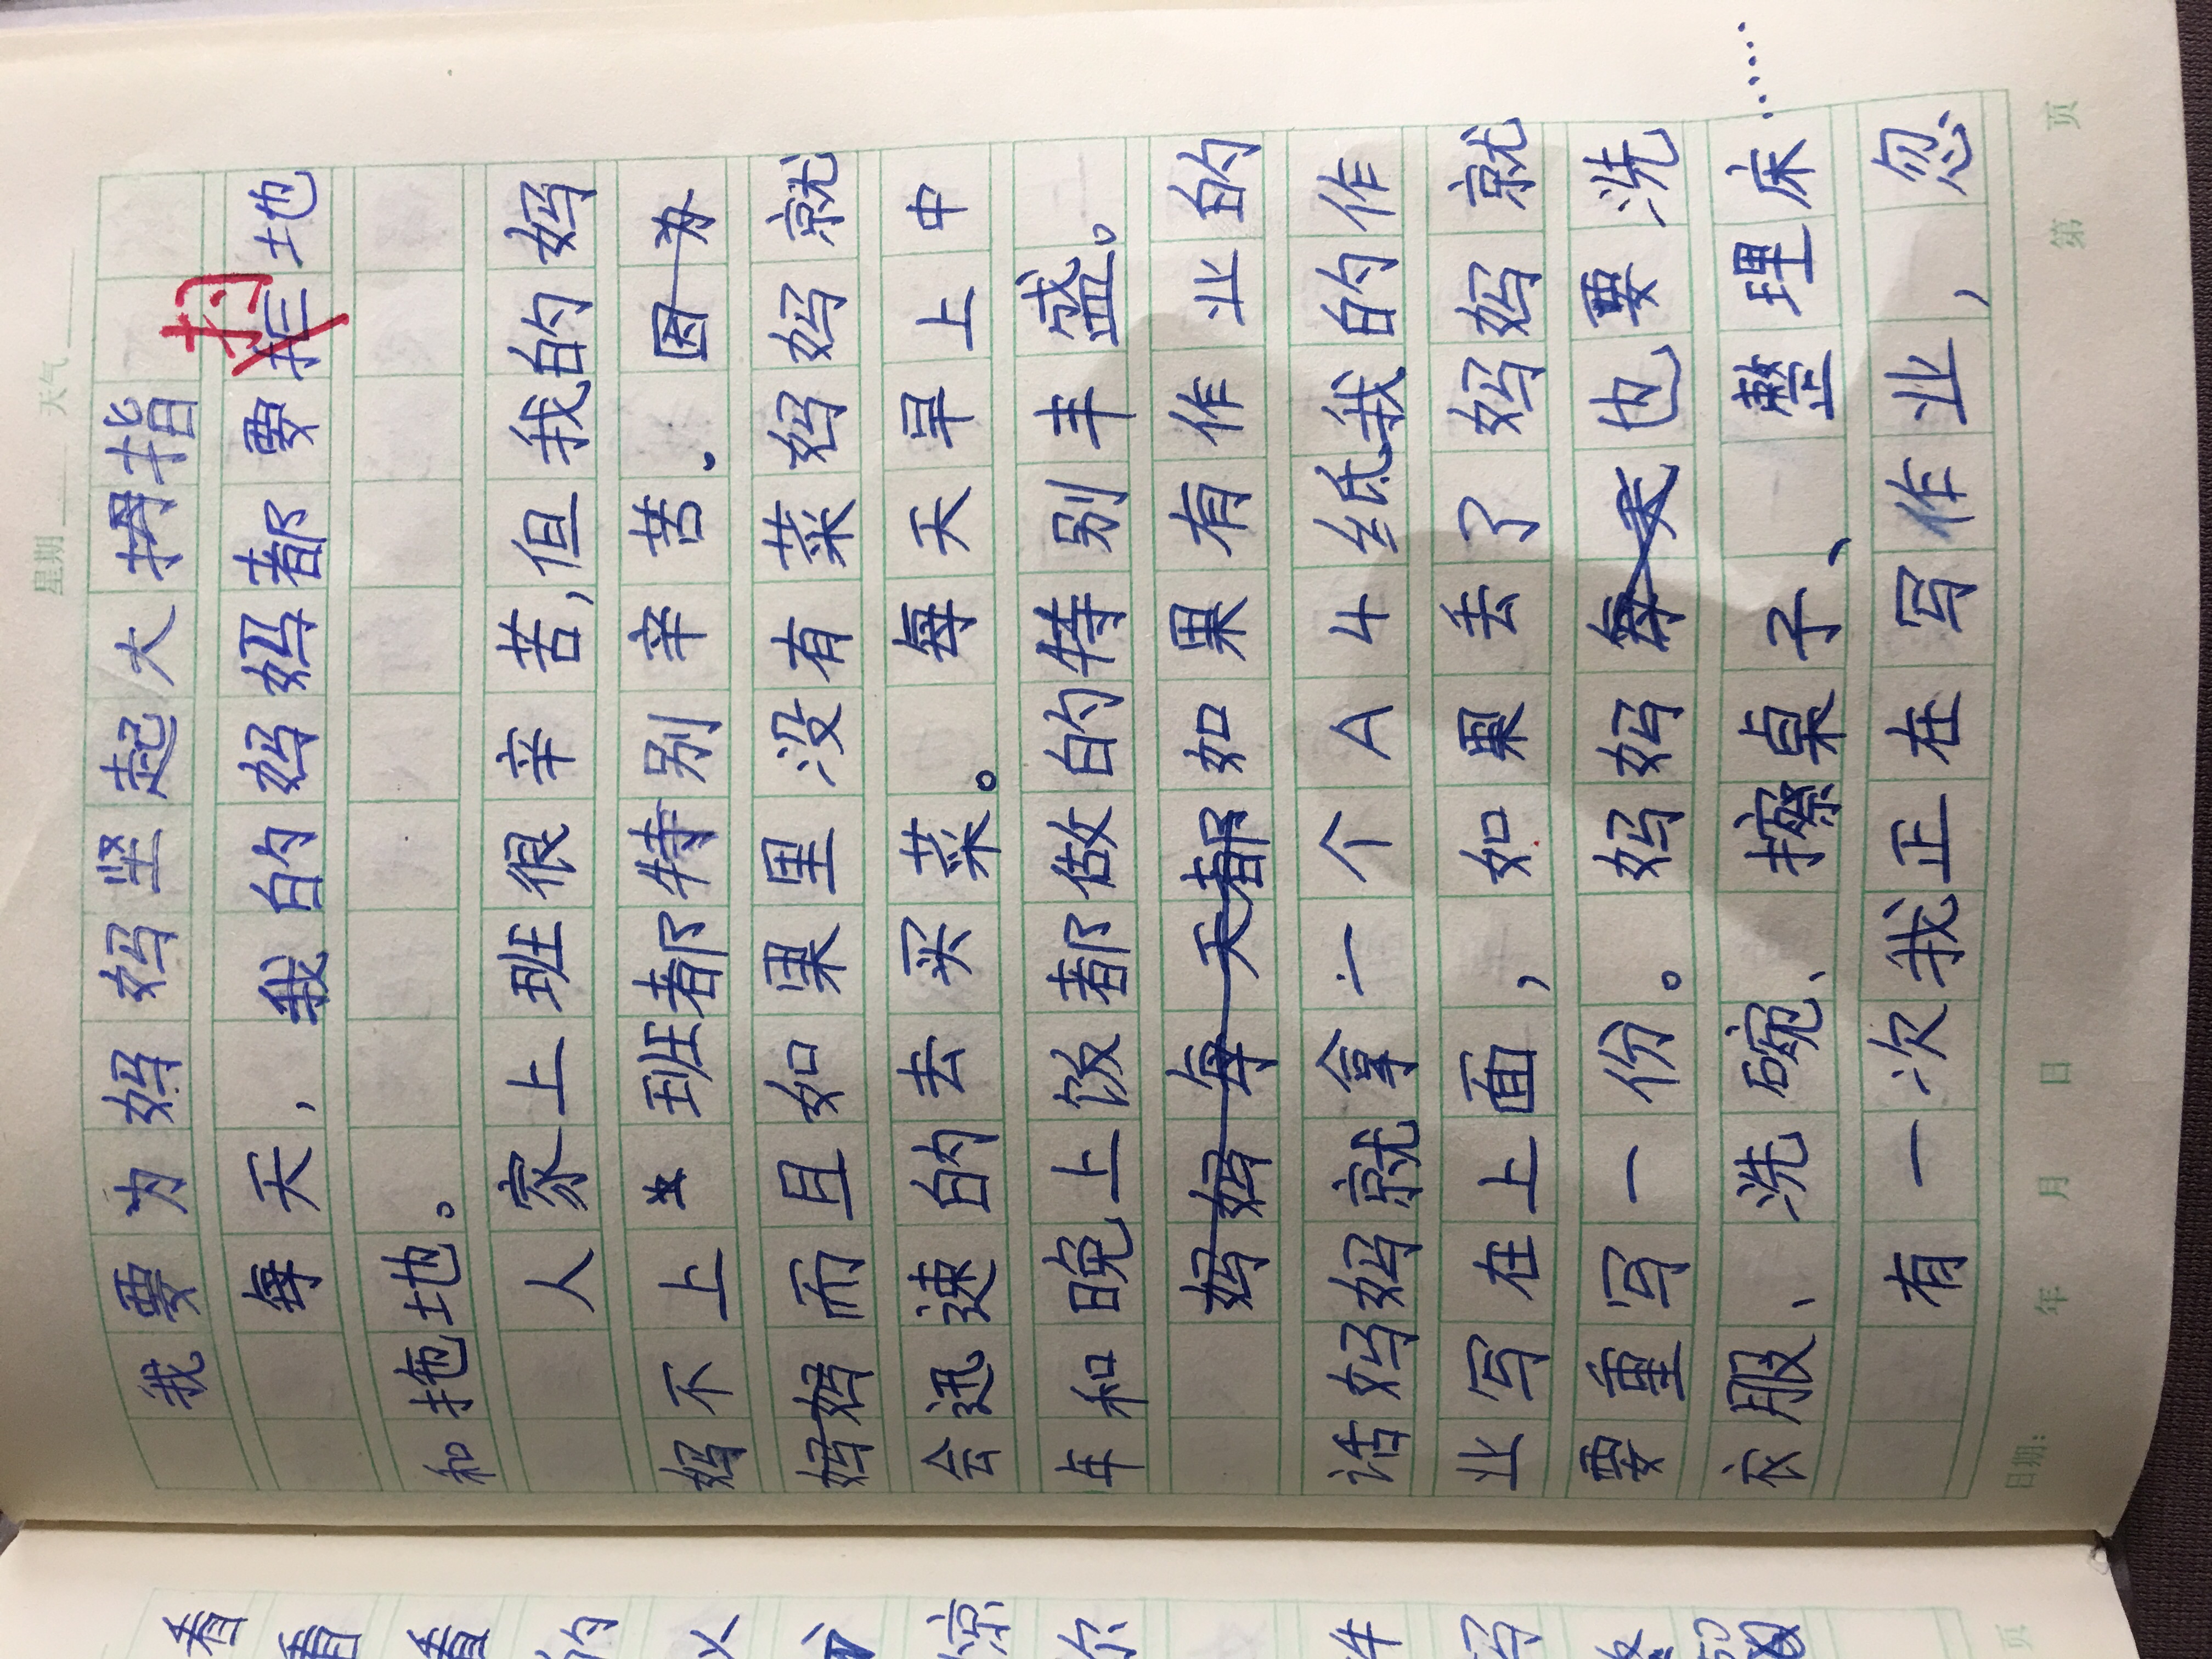 星期 天气
我要为妈妈坚起大拇指
每天,我的妈妈都要扫地
和拖地。
人家上班很辛苦,但我的妈
妈不上班都特别辛苦。因为
妈妈而且如果里没有菜妈妈就
会迅速的去买菜。每天早上中
午和晚上饭都做的特别丰盛。
妈妈每天都如果有作业的
话妈妈就拿一个A4纸我的作
业写在上面,如果丢了妈妈就
要重写一份。妈妈每天也要洗
衣服、洗碗、擦桌子、整理床……
有一次我正在写作业,忽
日期: 年 月 日 第 页